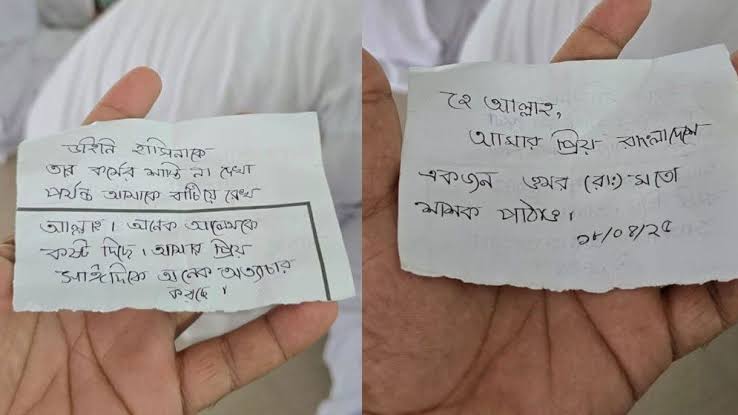 খুনি হাসিনাকে
তার কর্মের শাস্তি না দেখা
পর্যন্ত আমাকে বাঁচিয়ে রেখ
আল্লাহ। অনেক আলেমকে
কষ্ট দিছে। আমার প্রিয়
সাঈদিকে অনেক অত্যাচার
করছে।
হে আল্লাহ,
আমার প্রিয় বাংলাদেশে
একজন ওমর (রাঃ) মতো
শাসক পাঠাও।
১৮/০৪/২৫